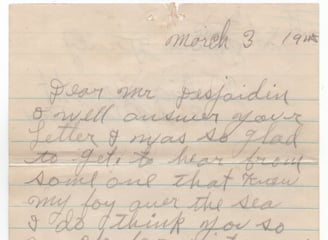 March 3 19
Dear Mr Desjaidin
I well answer your
letter I was so glad
to get to hear from
some one that knew
my joy over the sea
I do I think you so